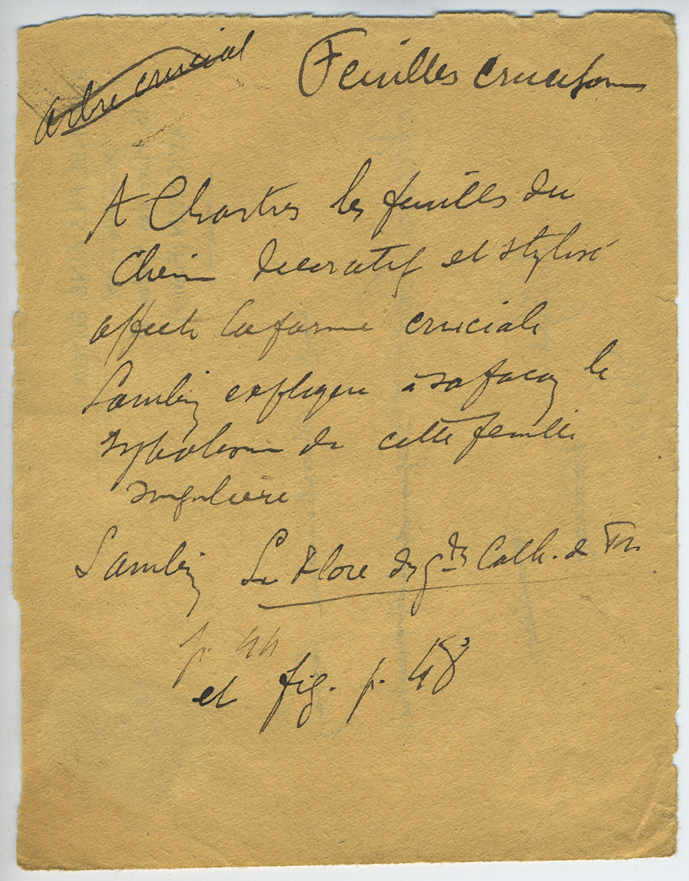 arbre crucial
Feuilles cruciformes
A Chartres les feuilles du
Chêne décoratif et stylisé
affecte la forme cruciale
Lambin explique à sa façon le
symbolisme de cette feuille
singulière
Lambin La Flore des gdes Cath. de Fr.
p. 44
et fig. p. 48